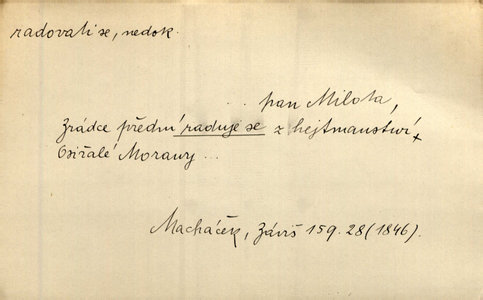 radovati se, nedok.
... pan Milota,
Zrádce přední raduje se z hejtmanství
Osiřalé Morawy ...
Macháček, Záviš 159.28 (1846).